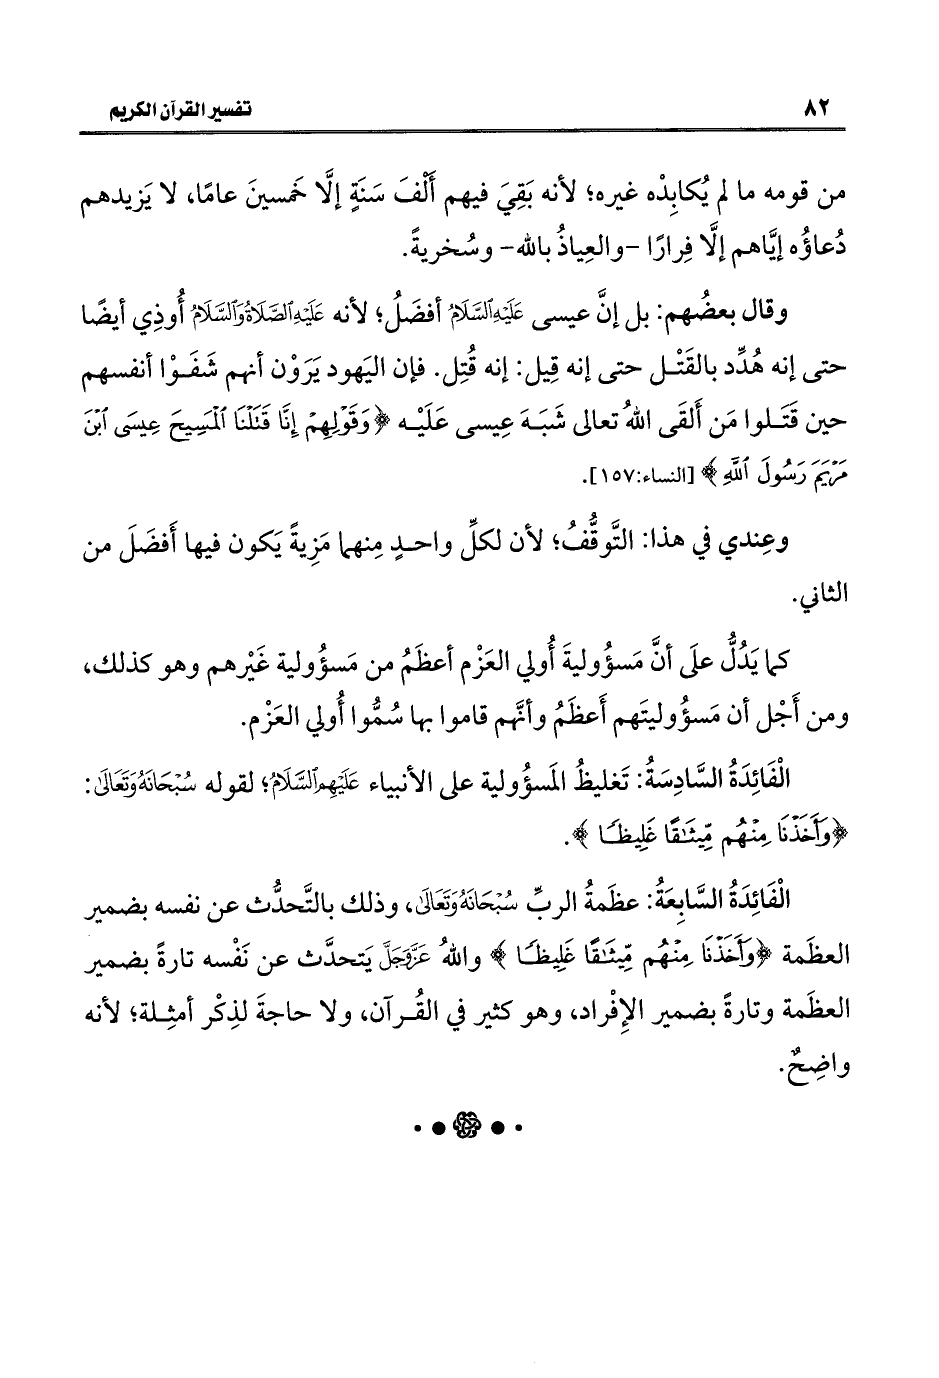 ٨٢
تفسير القرآن الكريم
من قومه ما لم يُكابِدْه غيره؛ لأنه بَقِيَ فيهم أَلْفَ سَنَةٍ إلَّا خَمسينَ عامًا، لا يَزيدهم
دُعاؤُه إيَّاهم إلَّا فِرارًا -والعِياذُ بالله- وسُخريةً.
وقال بعضُهم: بل إنَّ عيسى عَلَيْهِ السَّلَامُ أفضَلُ؛ لأنه عَلَيْهِ الصَّلَاةُ وَالسَّلَامُ أُوذِي أيضًا
حتى إنه هُدِّد بالقَتْـل حتى إنه قِيل: إنه قُتِل. فإن اليَهود يَرَوْن أنهم شَفَوْا أنفسهم
حين قَتَـلوا مَن أَلقَى اللهُ تعالى شَبَـهَ عِيسى عَلَيْـه ﴿وَقَوْلِهِمْ إِنَّا قَتَلْنَا ٱلْمَسِيحَ عِيسَى ٱبْنَ
مَرْيَمَ رَسُولَ ٱللَّهِ﴾ [النساء:١٥٧].
وعِندي في هذا: التَّوقُّفُ؛ لأن لكلِّ واحـدٍ مِنهما مَزِيةً يَكون فيها أَفضَلَ من
الثاني.
كما يَدُلُّ على أنَّ مَسؤُوليةَ أُولي العَزْم أعظَمُ من مَسؤُولية غَيْرهم وهو كذلك،
ومن أَجْل أن مَسؤُوليتَهم أَعظَمُ وأنَّهم قاموا بها سُمُّوا أُولي العَزْم.
الْفَائِدَةُ السَّادِسَةُ: تَغليظُ المَسؤُولية على الأنبياء عَلَيْهِمُ السَّلَامُ؛ لقوله سُبْحَانَهُ وَتَعَالَىٰ:
﴿وَأَخَذْنَا مِنْهُم مِّيثَٰقًا غَلِيظًا﴾.
الْفَائِدَةُ السَّابِعَةُ: عظَمةُ الربِّ سُبْحَانَهُ وَتَعَالَىٰ، وذلك بالتَّحدُّث عن نفسه بضَمير
العظَمة ﴿وَأَخَذْنَا مِنْهُم مِّيثَٰقًا غَلِيظًا﴾ واللهُ عَزَّوَجَلَّ يَتحدَّث عن نَفْسه تارةً بضَمير
العظَمة وتارةً بضَمير الإِفْراد، وهو كثير في القُـرآن، ولا حاجةَ لذِكْر أمثِـلة؛ لأنه
واضِحٌ.